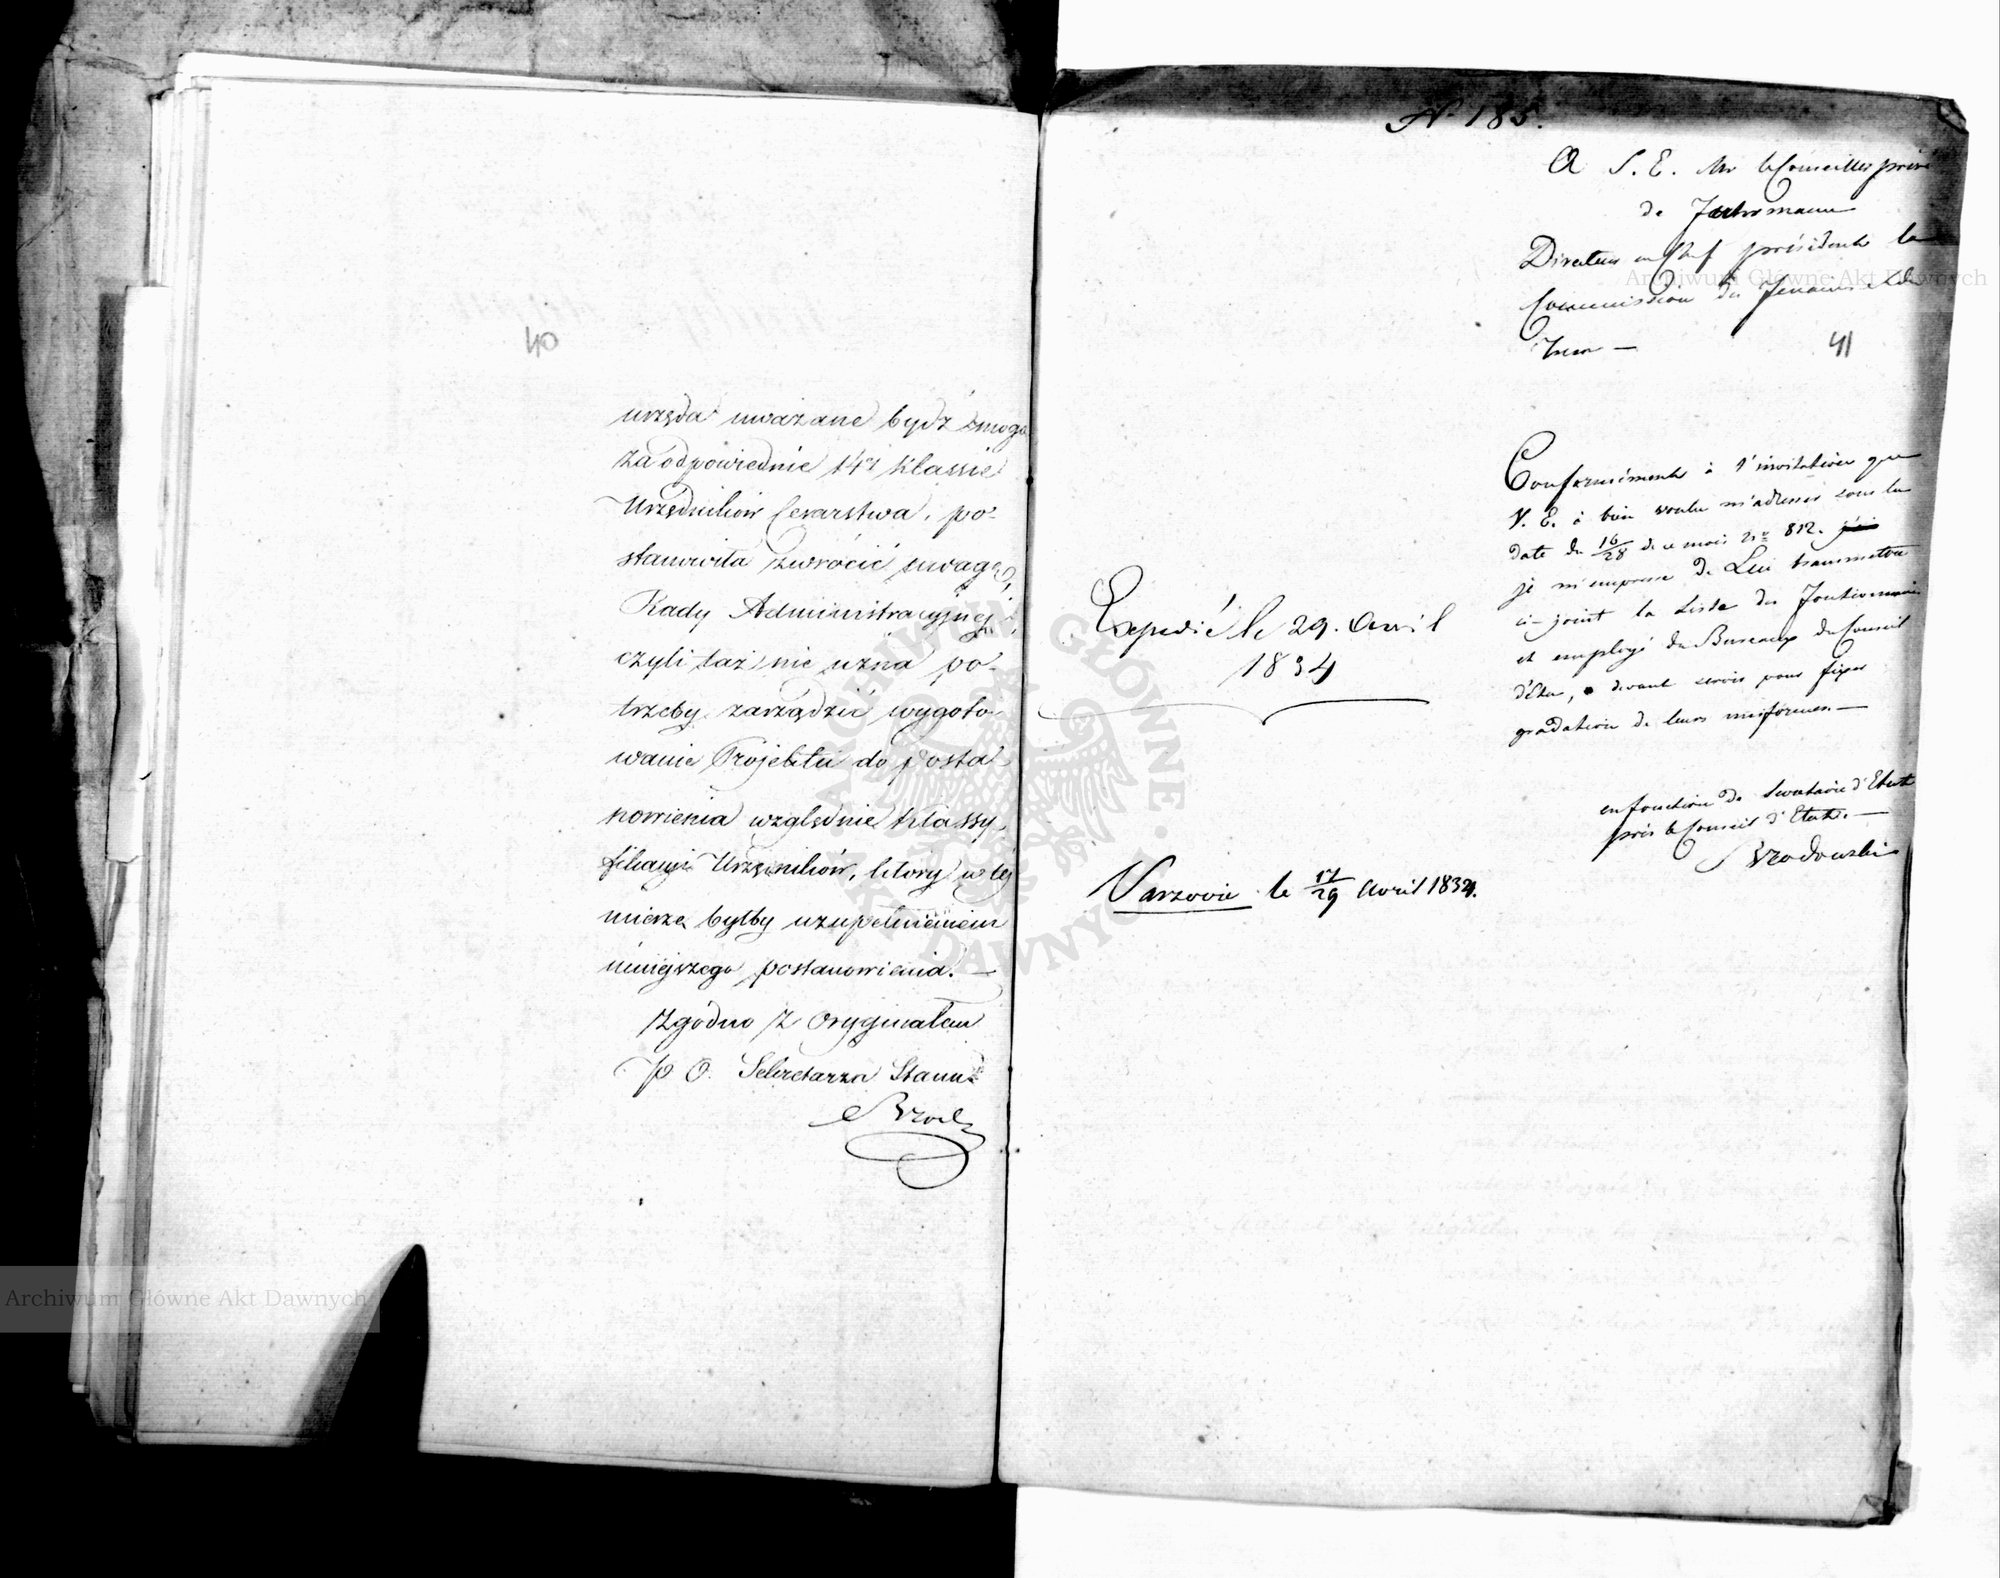 40
urzęda uważane bydź mogą
za odpowiednie 14ej klassie
Urzędników Cesarstwa, po-
stanowiła zwrócić uwagę
Rady Administracyjnej,
czyli taż nie uzna po-
trzeby zarządzić wygoto-
wanie Projektu do posta-
nowienia względnie klassy-
fikacyi Urzęników, który w tej
mierze byłby uzupełnieniem
niniejszego postanowienia. —
Zgodno z Oryginałem
p O. Sekretarza Stanu
Brzoz
N 185.
A S. E. Mr le Conseiller privé
de Fuhrmann
Directeur en Chef présidant la
Commission des Finances et du
Trésor —
41
Conformément à l'invitation que
V. E. à bien voulu m'adresser sous la
date du 16/28 de ce mois No 812.
je m'empresse de Lui transmettre
ci-joint la Liste des Fonctionnaires
et employé des Bureaux du Conseil
d'État, devant servir pour fixer
gradation de leurs uniformes. —
Expedié le 29. Avril
1834
en fonction de Secretaire d'Etat
près le Conseil d'Etat. —
Brzozowski
Varsovie le 17/29 Avril 1834.
Archiwum Główne Akt Dawnych
Archiwum Główne Akt Dawnych
ARCHIWUM GŁÓWNE AKT DAWNYCH